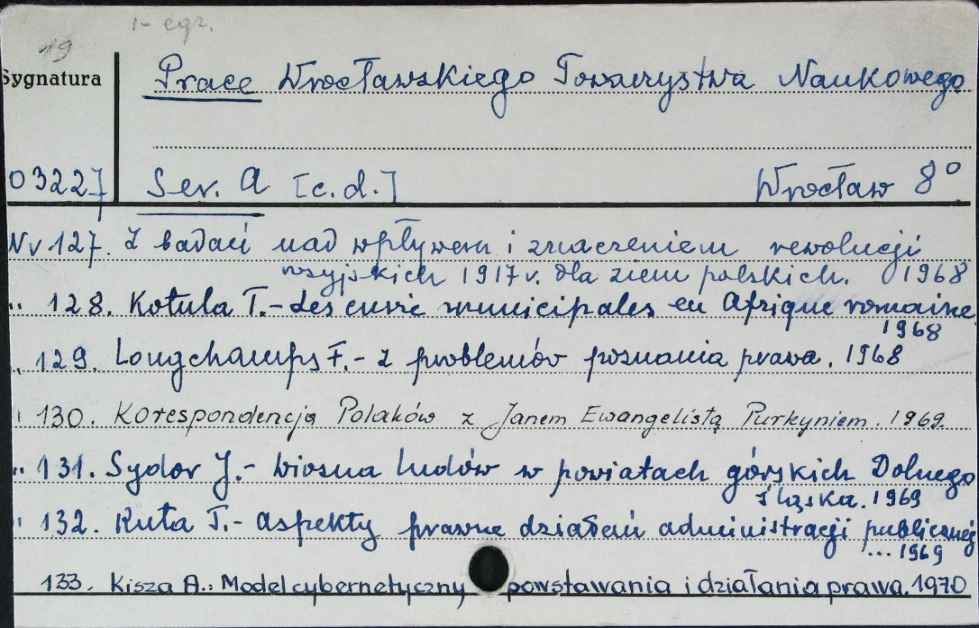 1- egz.
19
Sygnatura
Prace Wrocławskiego Towarzystwa Naukowego
03227
Ser. A [c.d.]
Wrocław 8°
Nr 127. Z badań nad wpływem i znaczeniem rewolucji
rosyjskich 1917 r. dla ziem polskich. 1968
" 128. Kotula T.- Les curie municipales en Afrique romaine
1968
" 129. Longchamps F.- Z problemów poznania prawa. 1968
" 130. Korespondencja Polaków z Janem Ewangelistą Purkyniem. 1969.
" 131. Sydor J.- Wiosna ludów w powiatach górskich Dolnego
Śląska. 1969
" 132. Kuta T.- Aspekty prawne działań administracji publicznej
... 1969
133. Kisza A.: Model cybernetyczny powstawania i działania prawa. 1970